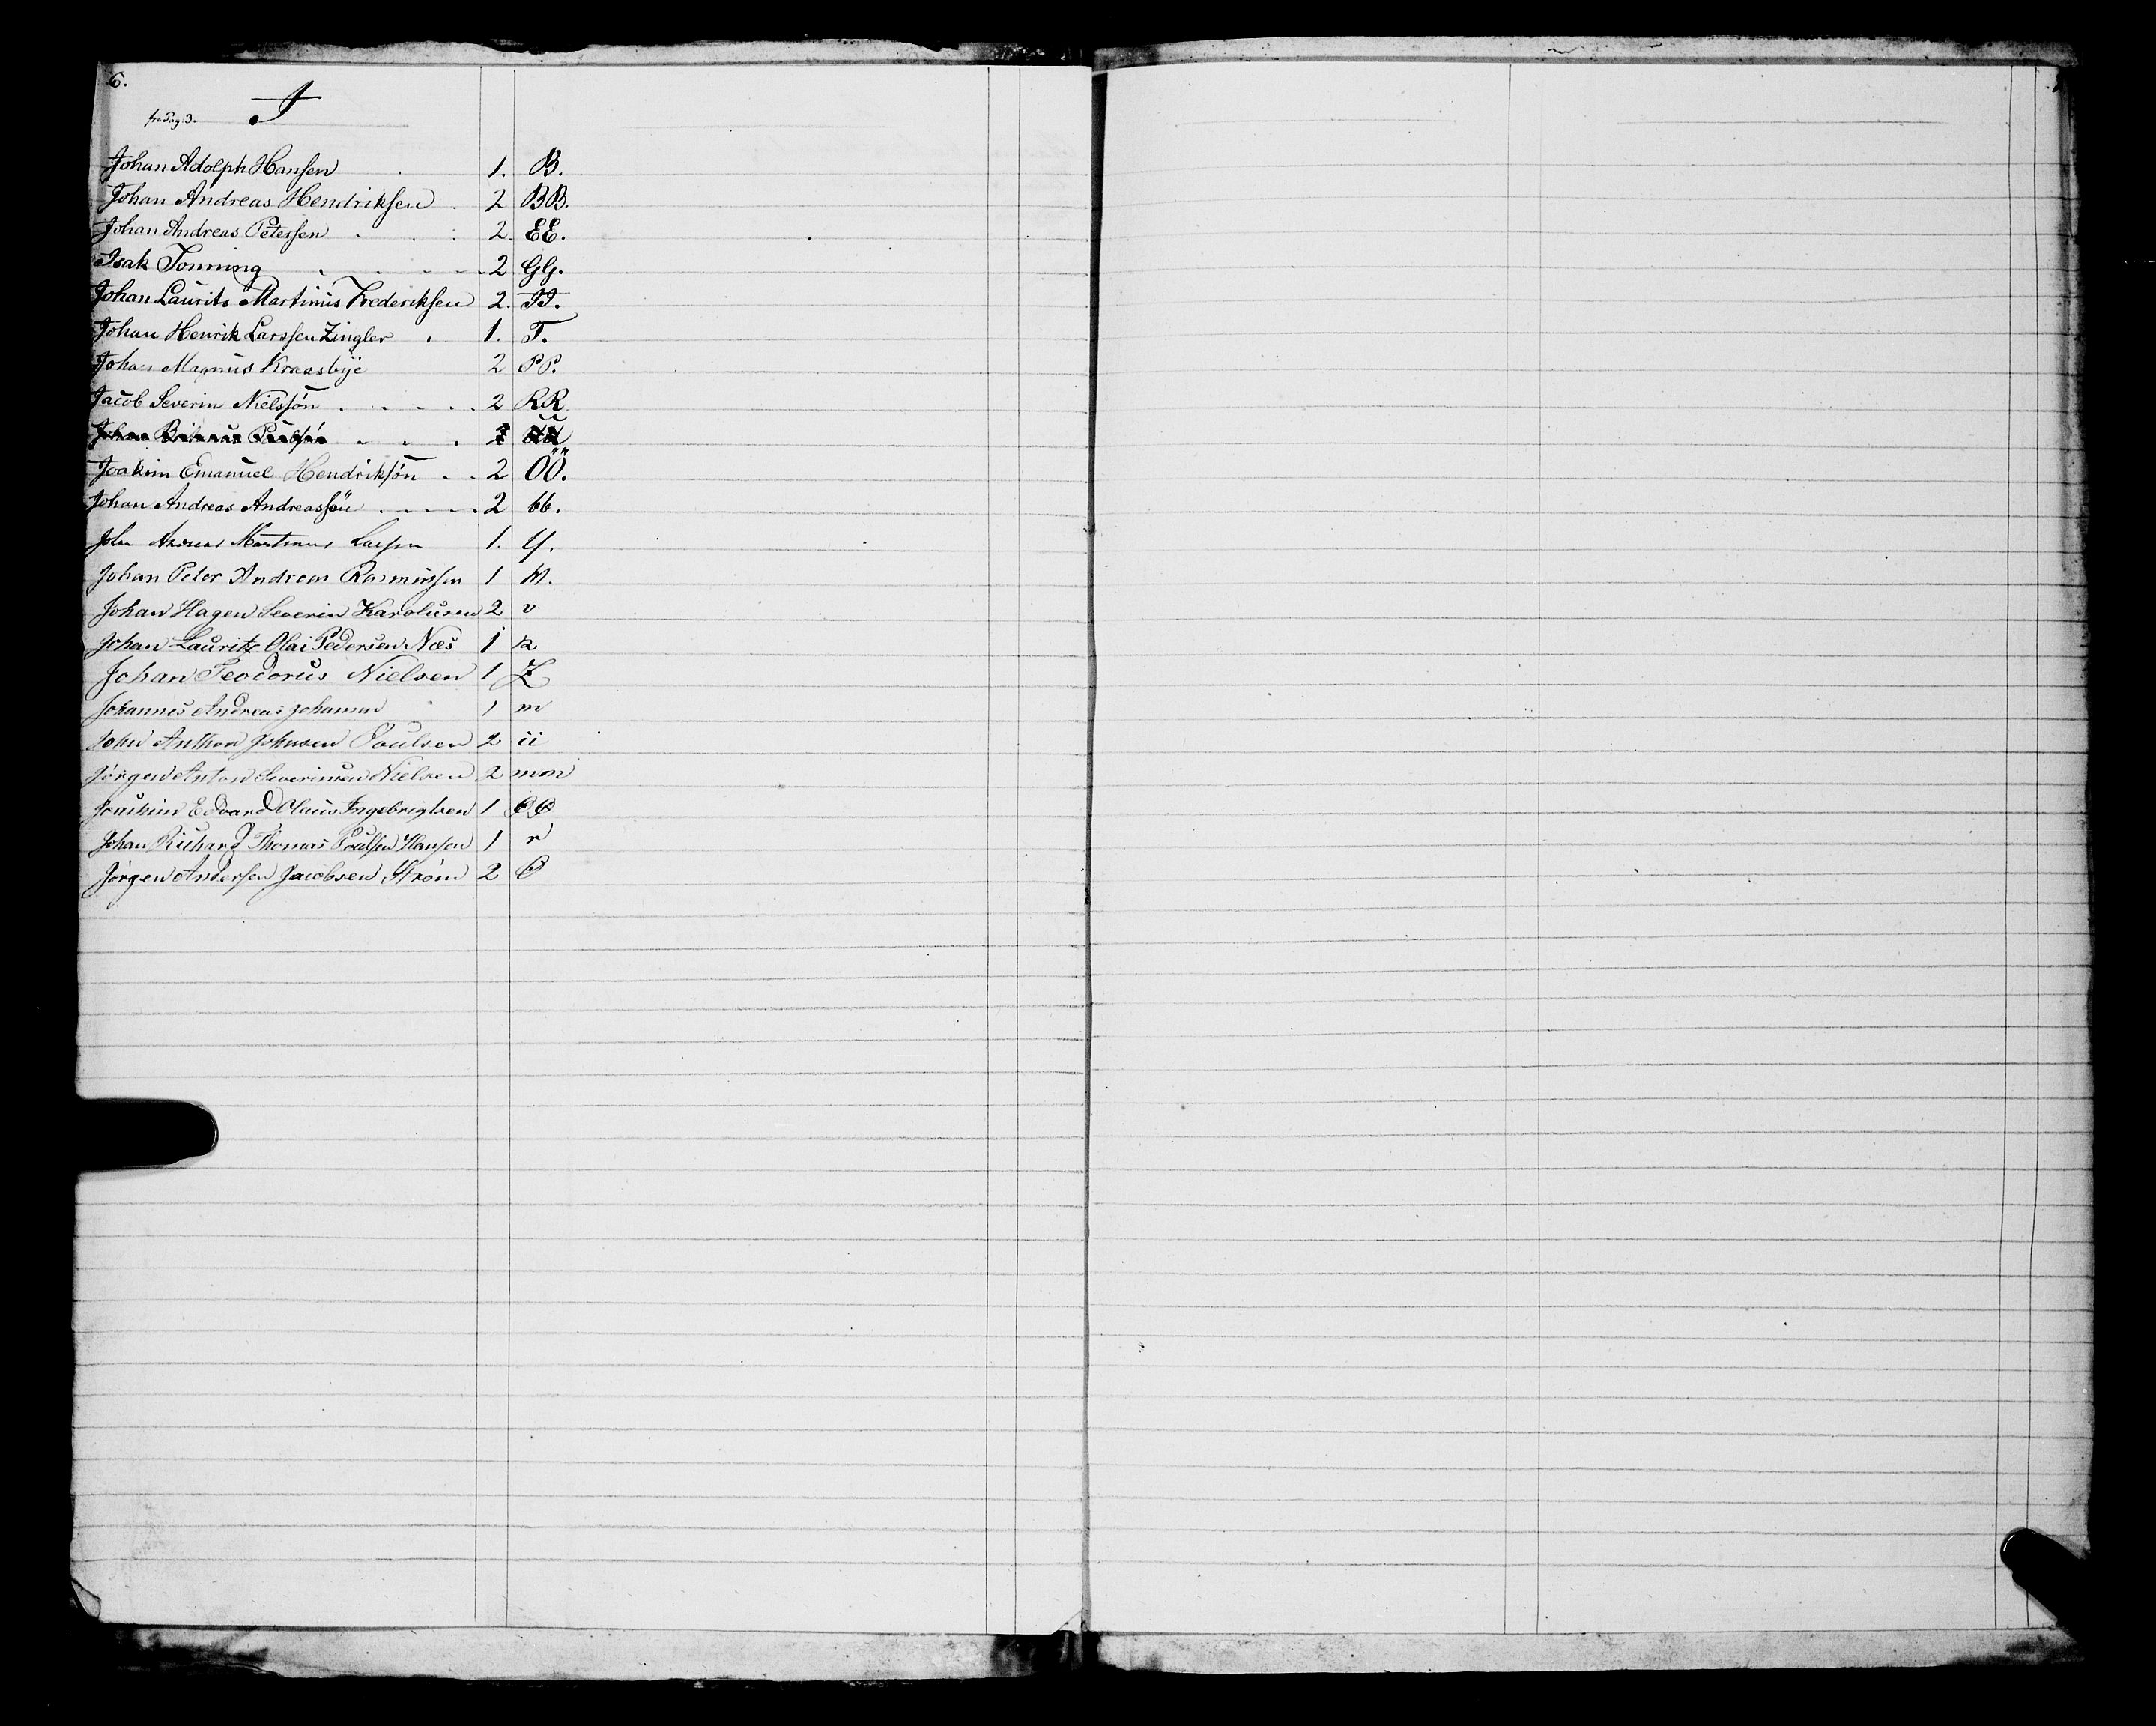 6.
fra Pag. 3. J
Johan Adolph Hansen 1. B.
Johan Andreas Hendriksen 2 BB.
Johan Andreas Petersen 2. EE.
Isak Tonning 2 GG.
Johan Laurits Martinus Frederiksen 2. II.
Johan Henrik Larssen Zingler 1. T.
Johan Magnus Kraasbye 2 PP.
Jacob Severin Nielssøn 2 RR
Johan Paulsøn
Joakim Emanuel Hendriksøn 2 ÖÖ.
Johan Andreas Andreassøn 2 bb.
Johan Andreas Martinus Larsen 1. Y.
Johan Peter Andreas Rasmussen 1
Johan Hagen Severin Karolusen 2 v
Johan Lauritz Olai Pedersen Næs 1
Johan Teodorus Nielsen 1 Z
Johannes Andreas Johansen 1 m
John Anthon Johnsen Poulsen 2 ii
Jørgen Anton Severinsen Nielsen 2 mm
Joachim Edvard Claus Ingebrigtsen 1
Johan Richard Thomas Poulsen Hansen 1 r
Jørgen Andersen Jacobsen Strøm 2